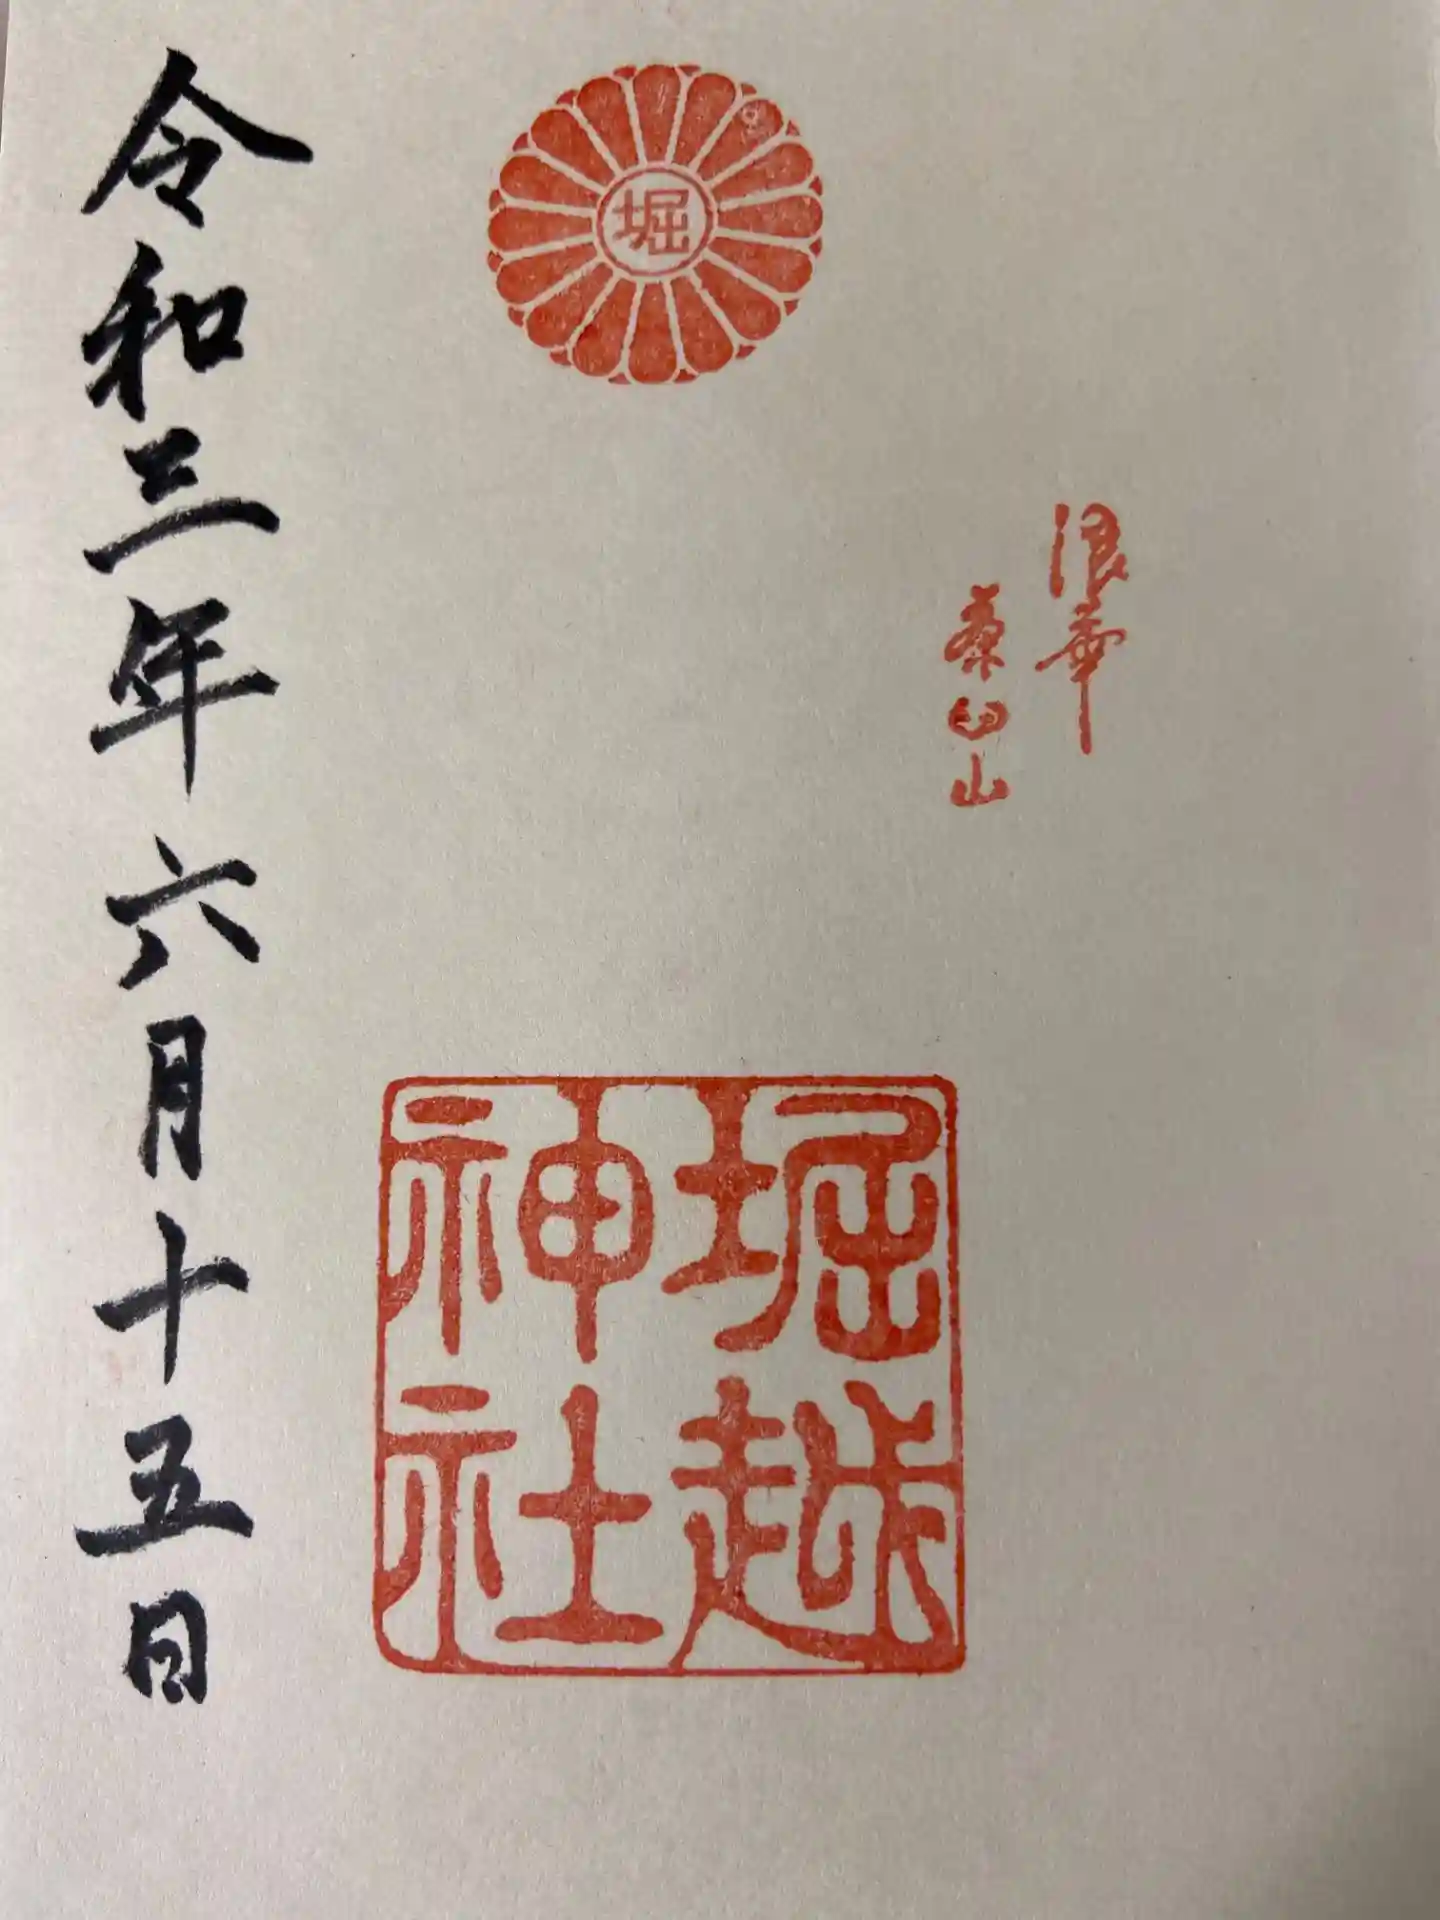 浪華
茶臼山
堀
堀越
神社
令和三年六月十五日